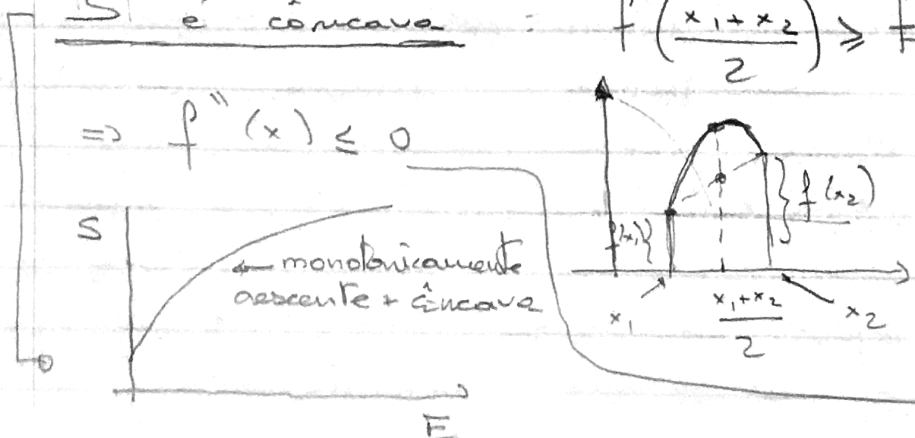 S é côncava : f((x₁+x₂)/2) ≥ f
⇒ f''(x) ≤ 0
S
← monotonicamente
crescente + côncava
E
f(x₁)
f(x₂)
x₁
(x₁+x₂)/2
x₂